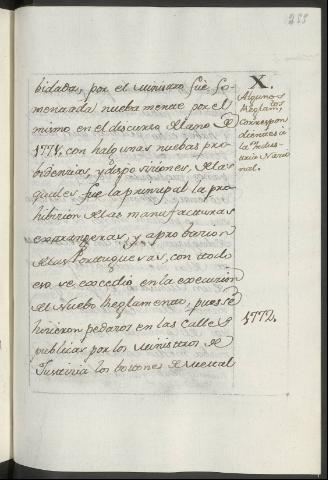 253
bidadas, por el Ministro fue fo-
mentada nueba mente por el
mismo en el discurso del año de
1771, con halgunas nuebas pro-
bidenzias, y disposiziones, de las
quales fue la prinzipal la pro-
hibizion de las manufacturas
extrangeras, y aprobazion
de las Portuguesas, con todo
eso se exzedio en la execuzion
del Nuebo Reglamento, pues se
hizieron pedazos en las calles
publicas por los Ministros de
Justizia los botones de Metal
X.
Algunos
Reglam.tos
correspon
dientes à
la Indus-
tria Nacio
nal.
1772.